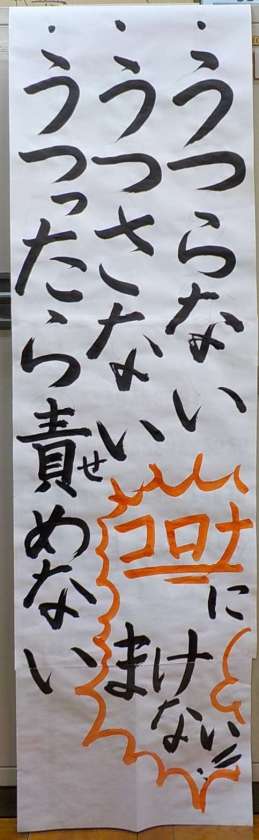 ・うつらない
・うつさない
・うつったら責めない
せ
コロナに
まけない!!